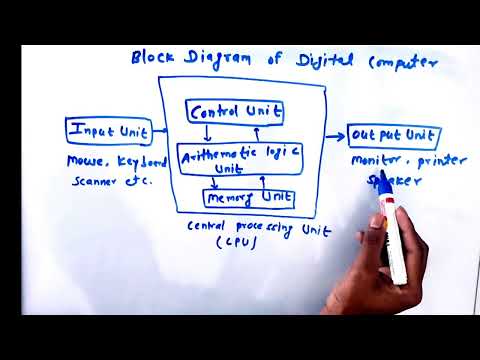 Block Diagram of Digital Computer
Control Unit
Input Unit
Output Unit
Mouse, Keyboard
scanner etc.
Arithematic logic
Unit
monitor, printer
speaker
Memory Unit
central processing Unit
(CPU)